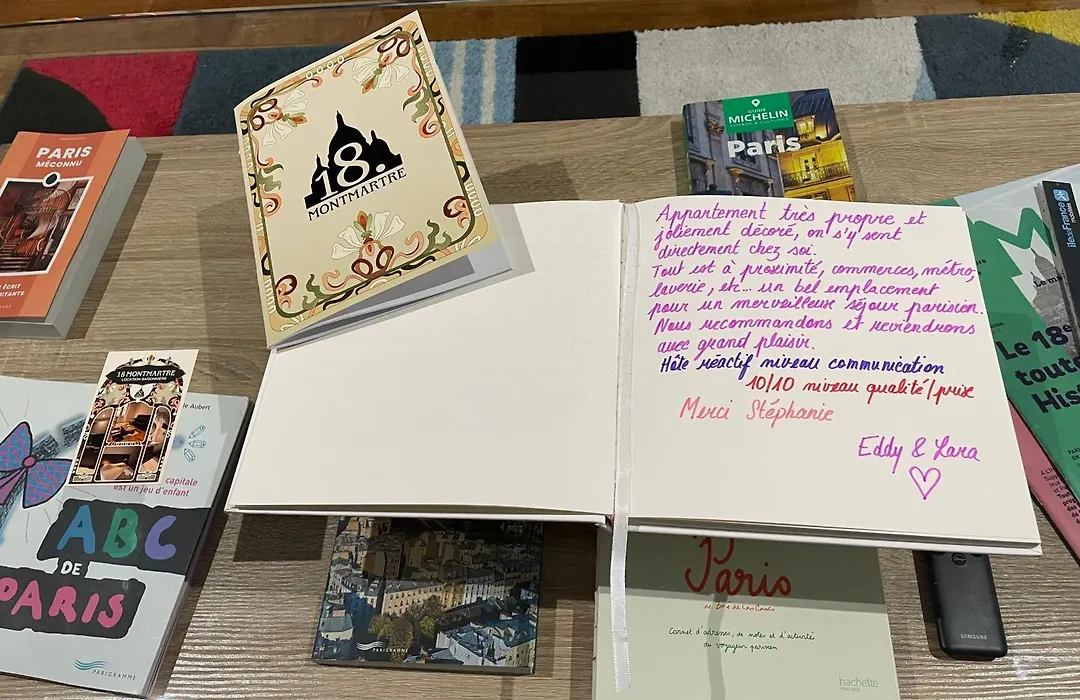 18.
MONTMARTRE
PARIS
MÉCONNU
GUIDE
MICHELIN
Paris
îledeFrance
mobilités
Appartement très propre et
joliement décoré, on s'y sent
directement chez soi.
Tout est à proximité, commerces, métro,
laverie, etc... un bel emplacement
pour un merveilleux séjour parisien.
Nous recommandons et reviendrons
avec grand plaisir.
Hôte réactif niveau communication
10/10 niveau qualité/prix
Merci Stéphanie
Eddy & Lara
18 MONTMARTRE
LOCATION SAISONNIÈRE
Aubert
capitale
est un jeu d'enfant
ABC
DE
PARIS
PARIGRAMME
PARIGRAMME
Paris
Carnet d'adresses, de notes et d'activité
du voyageur parisien
hachette
SAMSUNG
Le 18e